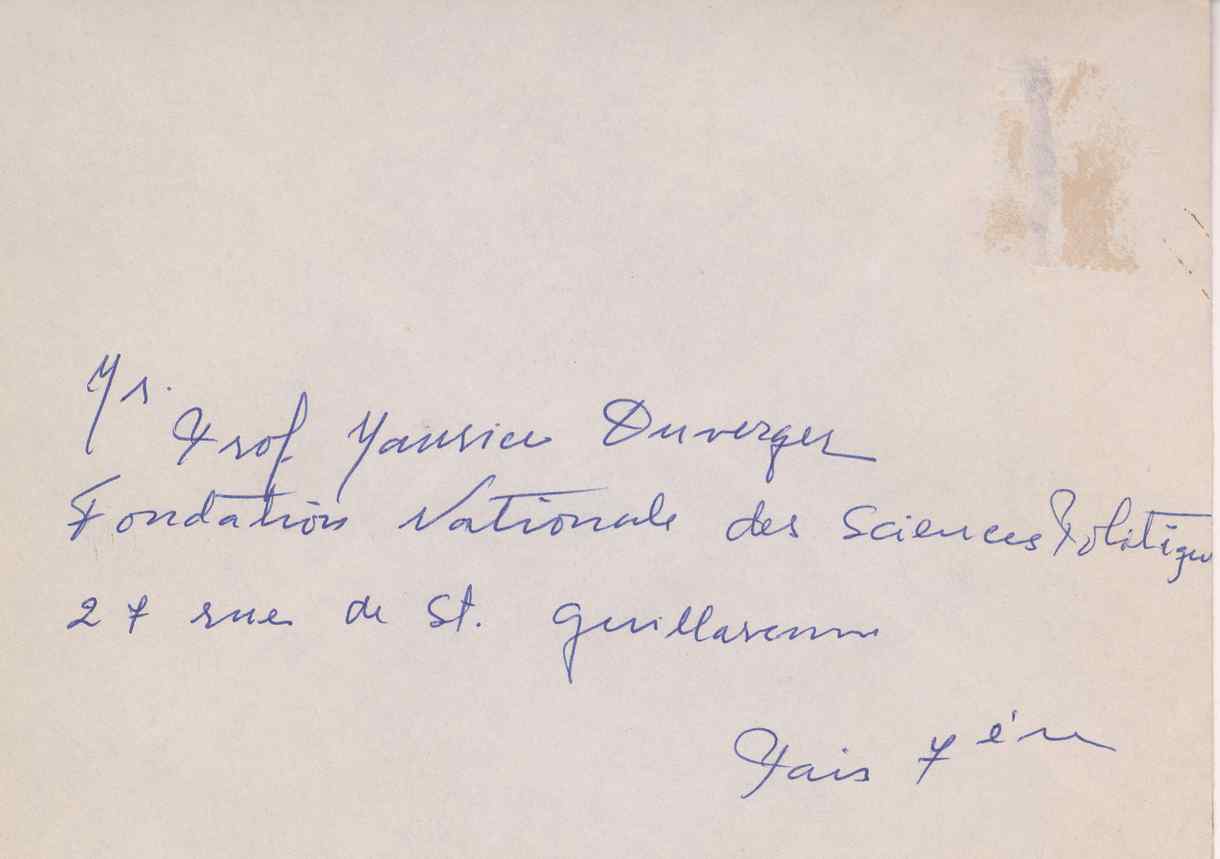 Mr.
Prof Maurice Duverger
Fondation Nationale des Sciences Politique
27 rue de St. Guillaaume
Pais 7ème